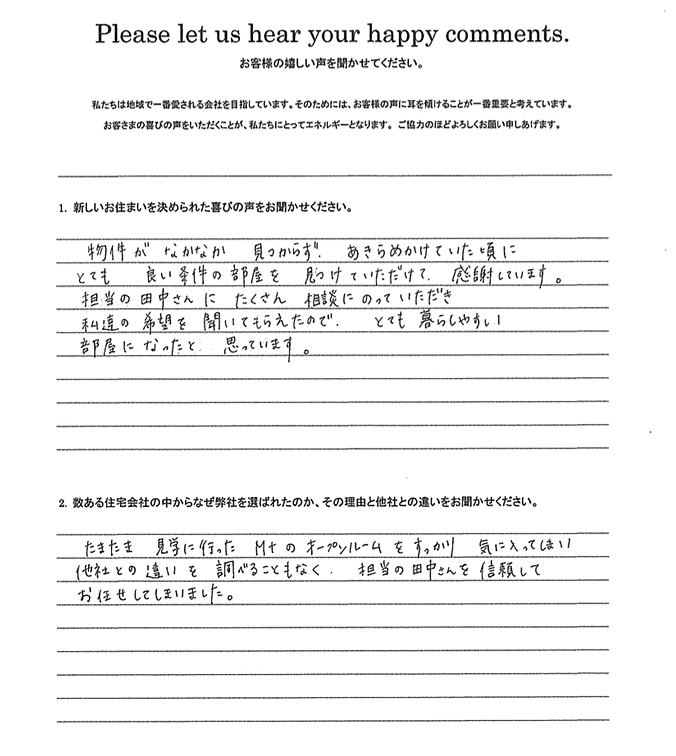 Please let us hear your happy comments.
お客様の嬉しい声を聞かせてください。
私たちは地域で一番愛される会社を目指しています。そのためには、お客様の声に耳を傾けることが一番重要と考えています。
お客さまの喜びの声をいただくことが、私たちにとってエネルギーとなります。ご協力のほどよろしくお願い申しあげます。
1. 新しいお住まいを決められた喜びの声をお聞かせください。
物件が なかなか 見つからず、あきらめかけていた頃に
とても 良い条件の部屋を 見つけていただけて、感謝しています。
担当の田中さんに たくさん 相談にのっていただき
私達の希望を聞いてもらえたので、とても暮らしやすい
部屋になったと 思っています。
2. 数ある住宅会社の中からなぜ弊社を選ばれたのか、その理由と他社との違いをお聞かせください。
たまたま 見学に行った M+のオープンルームをすっかり 気に入ってしまい
他社との違いを調べることもなく、担当の田中さんを信頼して
お任せしてしまいました。